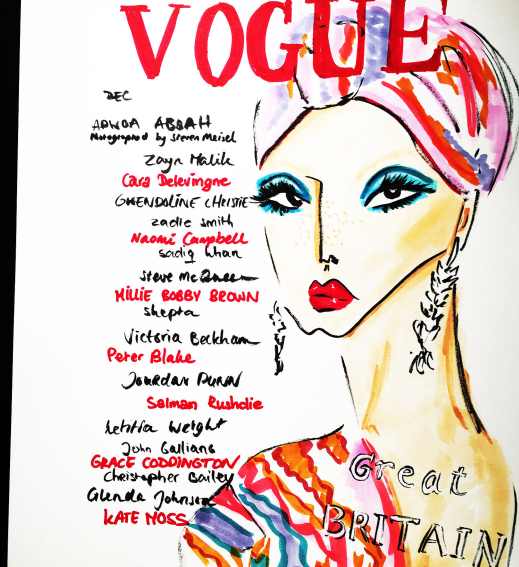 VOGUE
DEC
ADWOA ABOAH
Photographed by Steven Meisel
Zayn Malik
Cara Delevingne
GWENDOLINE CHRISTIE
zadie smith
Naomi Campbell
sadiq khan
Steve McQueen
MILLIE BOBBY BROWN
skepta
Victoria Beckham
Peter Blake
Jourdan DUNN
Salman Rushdie
Letitia Wright
John Galliano
GRACE CODDINGTON
Christopher Bailey
Glenda Johnson
KATE MOSS
Great
BRITAIN